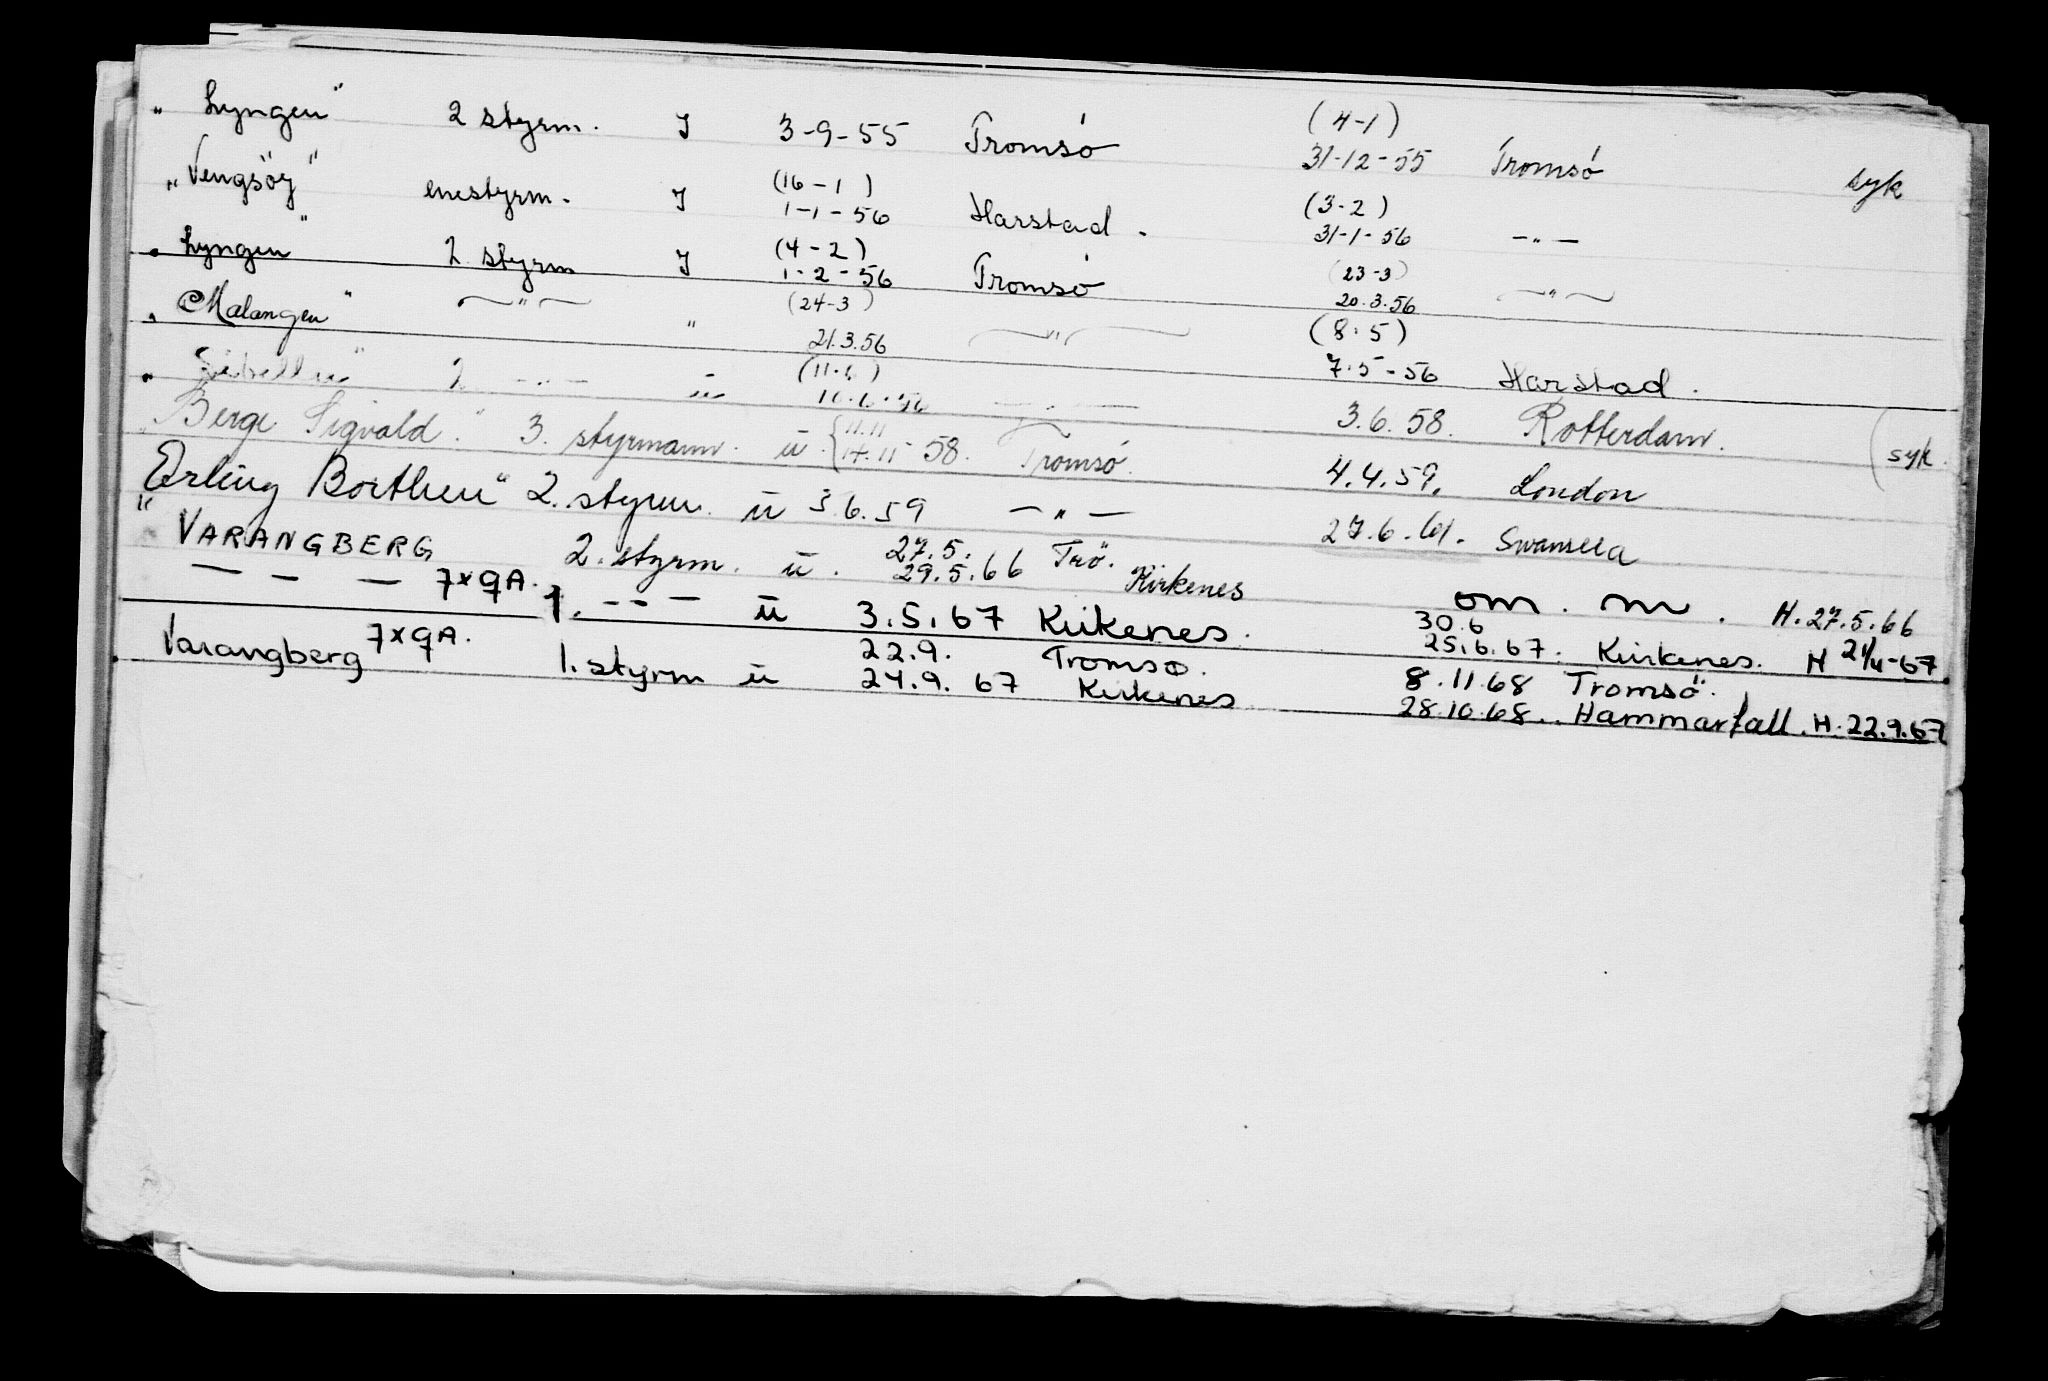 „ Lyngen" 2 styrm. J 3-9-55 Tromsö (4-1) 31-12-55 Tromsö syk
„Vengsöy" enestyrm. J (16-1) 1-1-56 Harstad. (3-2) 31-1-56 -„-
„ Lyngen" 2. styrm J (4-2) 1-2-56 Tromsö (23-3) 20.3.56 -"-
„ Malangen" -"- " (24-3) 21.3.56 -"- (8.5) 7.5-56 Harstad.
„ 2 -„- u (11.6) 10.6.56 -„- 3.6.58. Rotterdam. (syk.
„Berge Sigvald." 3. styrmann. u {11.11 14.11 58. Tromsö. 4.4.59. London
"Erling Borthen" 2. styrm. u 3.6.59 -„- 27.6.61. Swansea
VARANGBERG 2. styrm. u. 27.5. 29.5.66 Trö. Kirkenes om. m. H. 27.5.66
- - - 7x9A. 1. --- u 3.5.67 Kirkenes. 30.6 25.6.67. Kirkenes. H 21/4-67
Varangberg 7x9A. 1. styrm u 22.9. 24.9.67 Tromsø. Kirkenes 8.11.68 Tromsö. 28.10.68. Hammarfall. H. 22.9.67